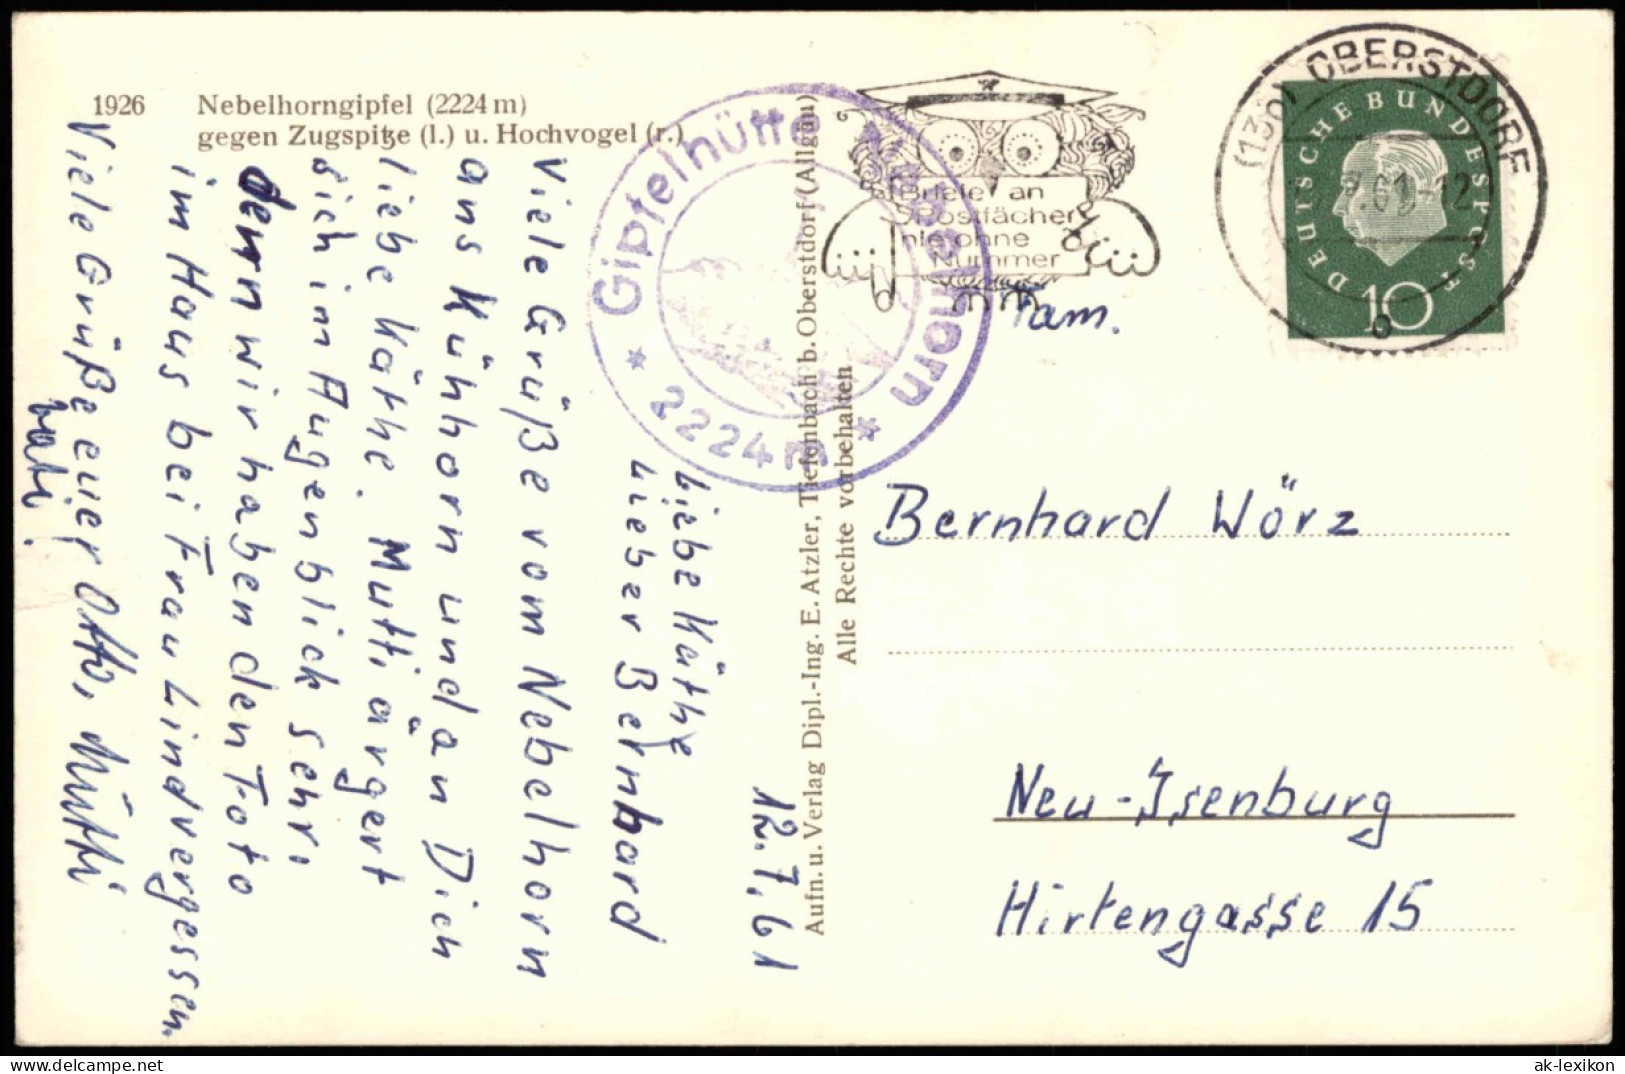 1926 Nebelhorngipfel (2224 m)
gegen Zugspitze (l.) u. Hochvogel (r.)
12.7.61
Liebe Käthe
Lieber Bernhard
Viele Grüße vom Nebelhorn
ans Kühhorn und an Dich
liebe Käthe. Mutti ärgert
sich im Augenblick sehr,
denn wir haben den Foto
im Haus bei Frau Lind vergessen.
Viele Grüße euer Otto, Mutti
Vati.
Gipfelhütte Nebelhorn
* 2224 m *
Aufn. u. Verlag Dipl.-Ing. E. Atzler, Tiefenbach b. Oberstdorf (Allgäu)
Alle Rechte vorbehalten
Briefe an
Postfächer
nie ohne
Nummer
(13b) OBERSTDORF
.61-12
o
DEUTSCHE BUNDESPOST
10
Fam.
Bernhard Wörz
Neu-Isenburg
Hirtengasse 15
ak-lexikon